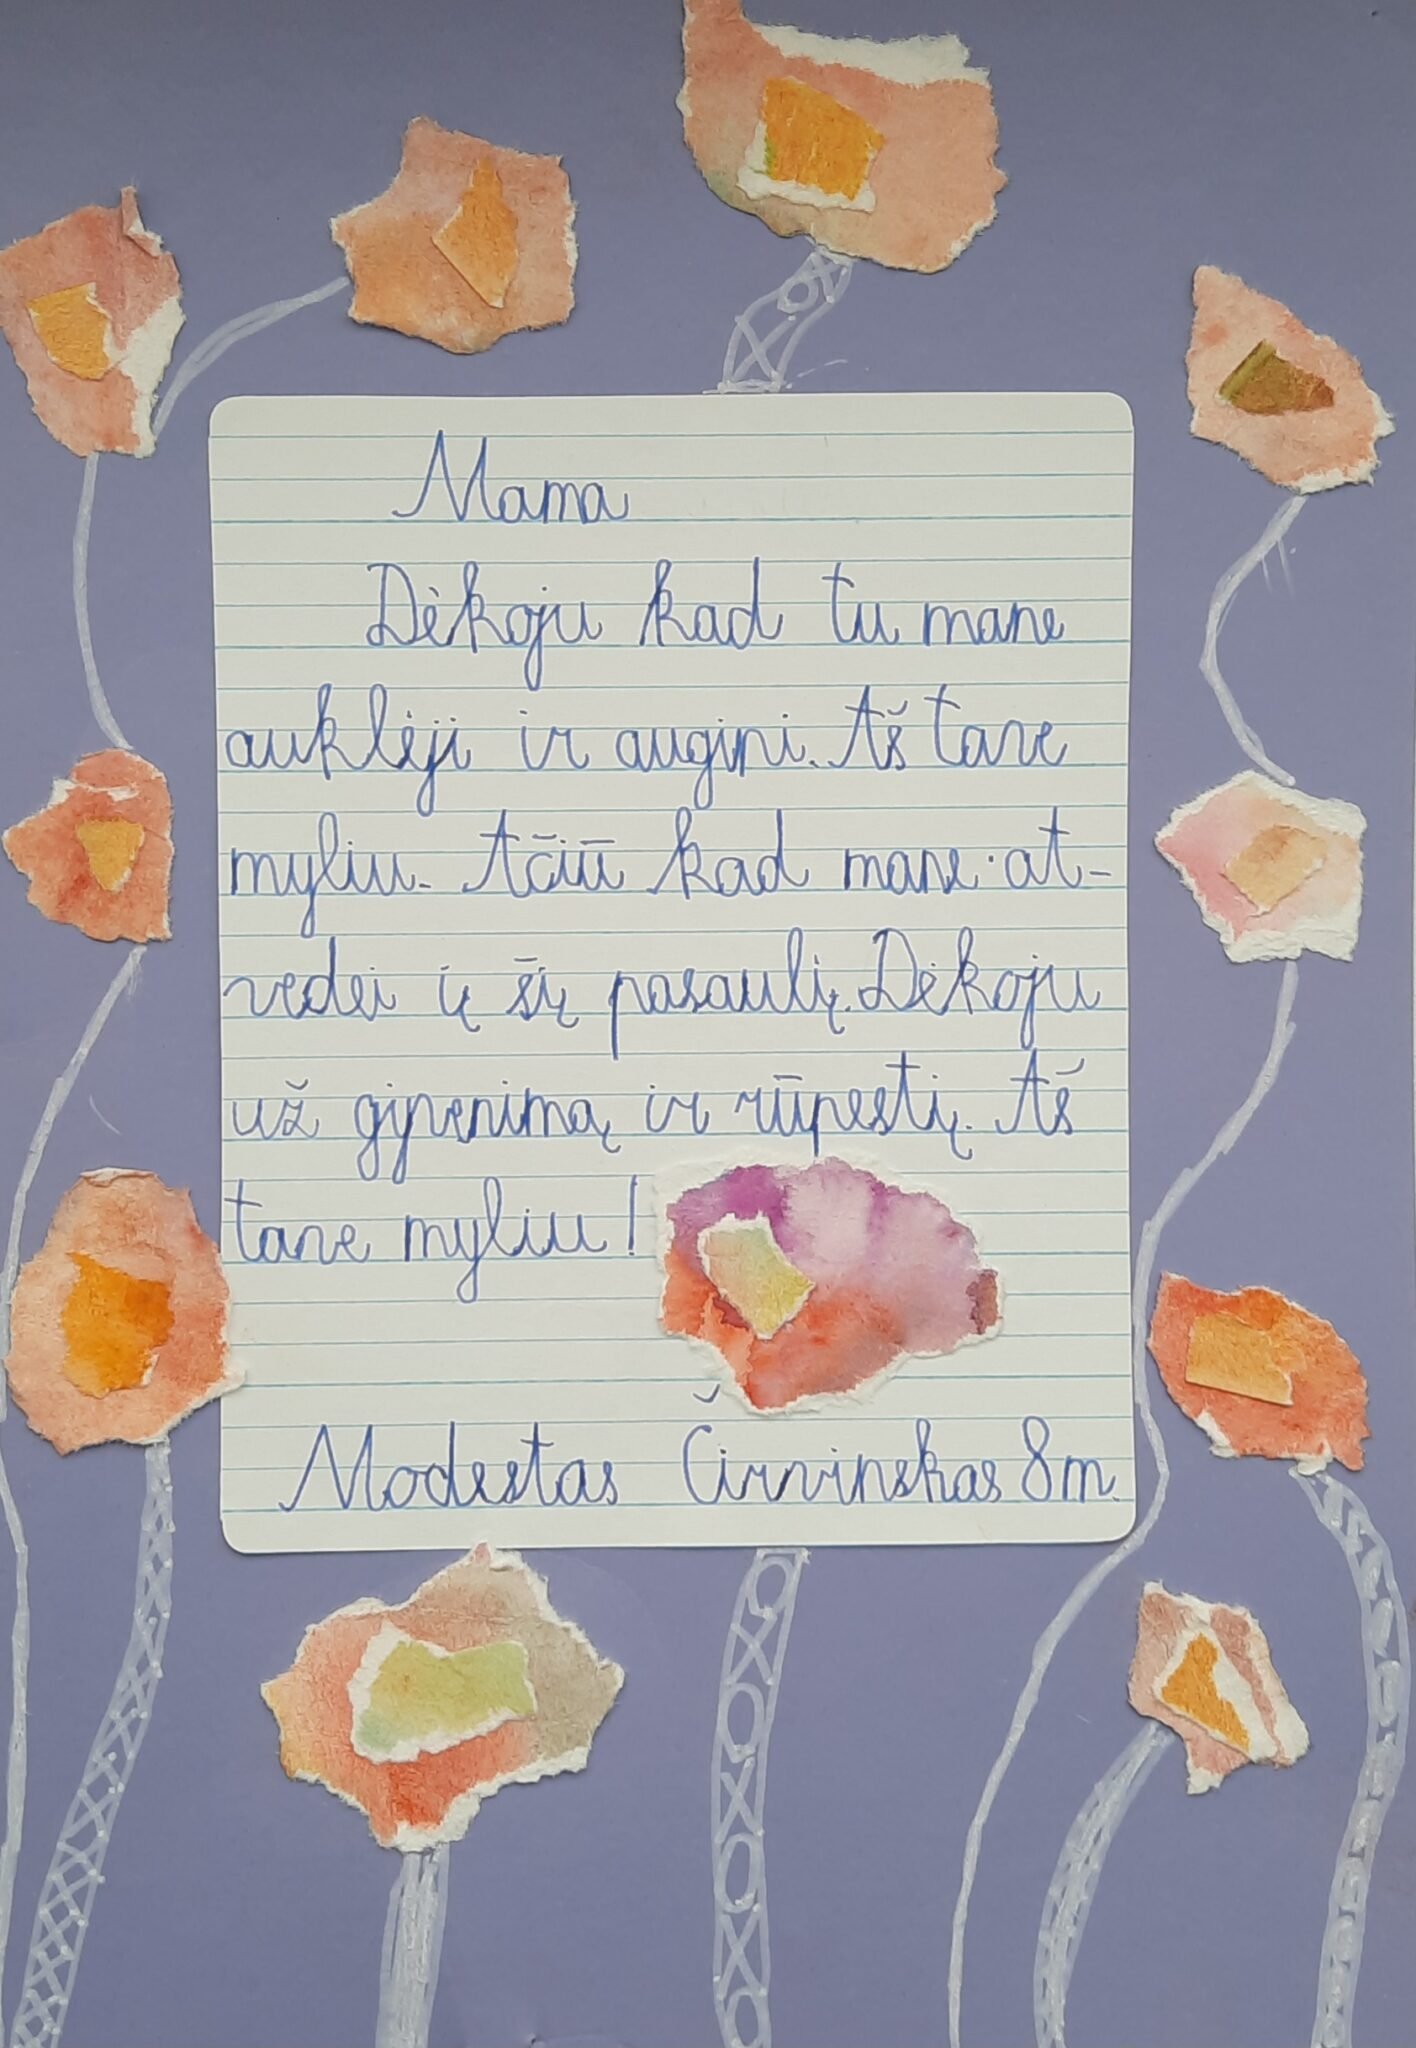 Mama
Dėkoju kad tu mane
auklėji ir augini. Aš tave
myliu. Ačiū kad mane at-
vedei į šį pasaulį. Dėkoju
už gyvenimą ir rūpestį. Aš
tave myliu!
Modestas Čirvinskas 8m.